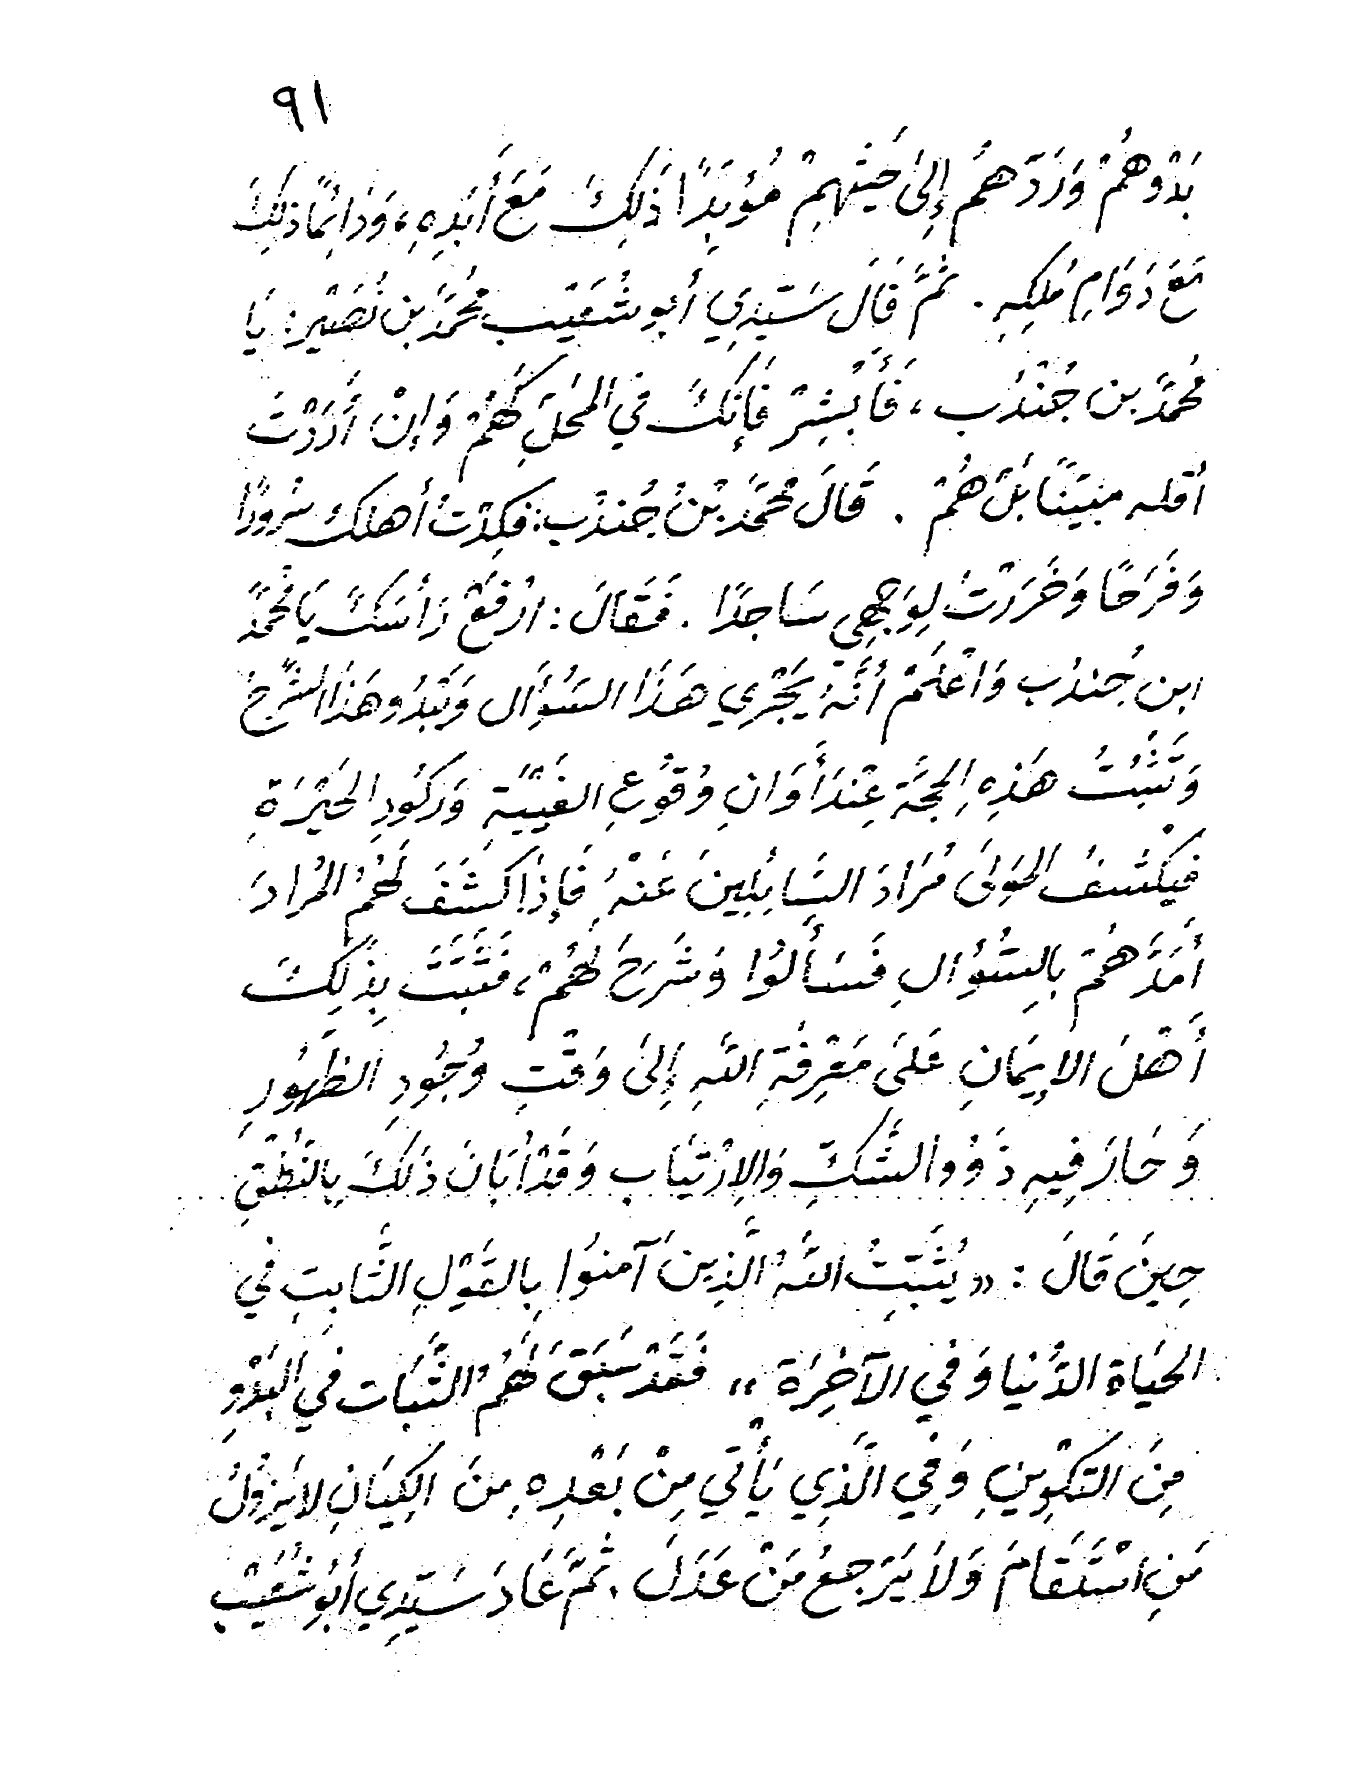 ٩١
بَدْوهُمْ وَرَدَّهُم إِلىَ حَيْثِهِمْ مُؤبَدًا ذَلِكَ مَعَ أَبَدِهِ، وَدَائِمًا ذلِكَ
مَعَ دَوَامِ مُلكِهِ . ثُمَّ قَالَ سَيِّدِي أَبُو شُعَيْب مُحُمَّدْ بن نُصَيْر: يَا
مُحُمَّدْ بن جُنْدُب ، فَأَبْشِرْ فَإِنَكَ في المحَلِ كَهُمْ وَإِنْ أَرَدْتَ
أقله مبيَنًا بَلْ هُمْ . قَالَ مُحَمَّدْ بْنْ جُندُب: فكِدْتُ أهلك سُرورًا
وَفَرَحًا وَخَرَرْتُ لِوَجهِي سَاجدًا . فَقَالَ : ارْفَعْ رَأسَكَ يَا مُحَمَّدْ
ابن جُندُب وَاعْلَمْ أَنَّهُ يَجْرِي هَذَا السُؤَال وَيَبْدُو هَذَا الشَّرحُ
وَتَثْبُتُ هَذِهِ الحِجَّة عِنْدَ أَوَانِ وُقُوعِ الغَيْبَةِ وَرَكُودِ الحَيْرَةِ
فيَكْشفُ المَوَلىَ مُرَادَ السَّائِلِينَ عَنْهُ فَإِذَا كَشَفَ لَهُمُ المُرادَ
أَمَدَّهُمْ بِالسُؤَالِ فَسَأَلُوا وَشَرَحَ لَهُمْ، فَثَبَتَ بِذَلِكَ
أَهْلَ الإيمَانِ عَلىَ مَعْرِفَةِ اللهِ إِلىَ وَقْتِ وُجُودِ الظهُورِ
وَحَارَ فِيهِ ذَوُو الشَّكِّ وَالإرْتيَاب وَقَدْ أَبَانَ ذَلكَ بِالنُطْقِ
حِينَ قَالَ : « يُثَبّتُ اللهُ الَّذِينَ آمنوُا بِالقَوْلِ الثَّابتِ في
الحَيَاة الدُّنيا وَفي الآخِرَة » فَقَدْ سَبَقَ لَهُمُ الثَّبَات في البَدْوِ
مِنَ التكوِينِ وَفي الَّذِي يَأْتي مِنْ بَعْدِهِ مِنَ الكِيَانِ لا يَزوْلُ
مَنِ اسْتَقَامَ وَلاَ يَرجعُ مَنْ عَدَلَ . ثُمَّ عَادَ سَيِّدِي أَبُو شُعَيْب